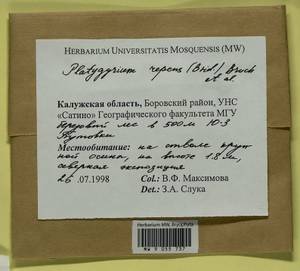 HERBARIUM UNIVERSITATIS MOSQUENSIS (MW)
Platygyrium repens (Brid.) Bruch
et al.
Калужская область, Боровский район, УНС
«Сатино» Географического факультета МГУ
лес в 500м Ю-З
Местообитание: на стволе
ной осины, на высоте 1.8 м,
северная экспозиция
26 .07.1998 Col.: В.Ф. Максимова
Det.: З.А. Слука
Herbarium MW, Bryophyta